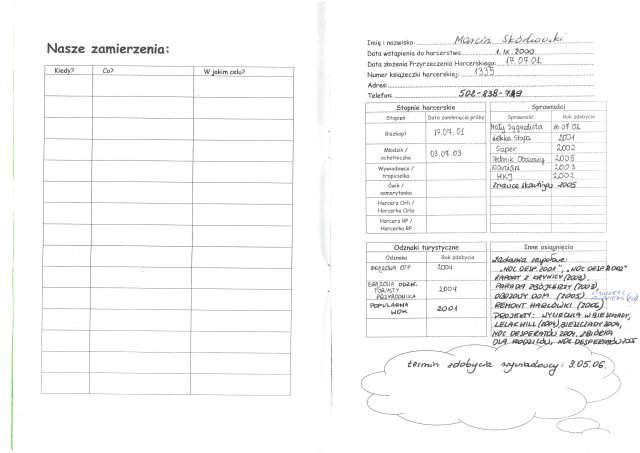 Nasze zamierzenia:
Kiedy? Co? W jakim celu?
Imię i nazwisko: Marcin
Data wstąpienia do harcerstwa: 1.IX.2000
Data złożenia Przyrzeczenia Harcerskiego: 17.07.01
Numer książeczki harcerskiej: 1335
Adres:
Telefon: 502-838-749
Stopnie harcerskie
Stopień Data zamknięcia próby
Biszkopt 17.07.01
Młodzik / ochotniczka 03.07.03
Wywiadowca / tropicielka
Ćwik / samarytanka
Harcerz Orli / Harcerka Orla
Harcerz RP / Harcerka RP
Sprawności
Sprawność Rok zdobycia
Mały Sygnalista 16.07.02
Lekka stopa 2001
Saper 2002
Technik Obozowy 2006
2003
HKJ 2002
Znawca skautingu 2005
Odznaki turystyczne
Odznaka Rok zdobycia
BRĄZOWA OTP 2004
BRĄZOWA ODZN.
TURYSTY
PRZYRODNIKA 2004
POPULARNA
2001
Inne osiągnięcia
zadania zespołowe:
„NOC DESP. 2001”,
RAPORT Z KRYNICY (2003),
PARADA ZBÓJCERZY (2003),
OBOZOWY DOM (2005)
REMONT HARCÓWKI (2006)
PROJEKTY: WYCIECZKA W BIESZCZADY,
BIESZCZADY 2004,
NOC DESPERATÓW 2004, ZBIÓRKA
DLA RODZICÓW, NOC DESPERATÓW 2005
termin zdobycia wywiadowcy: 3.05.06.